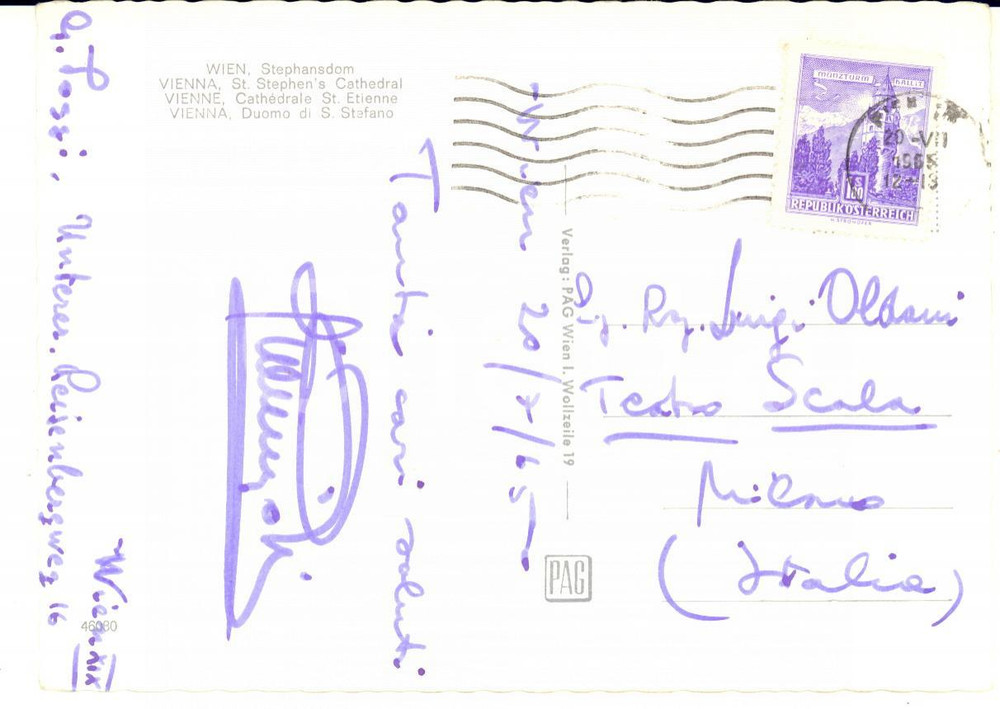 WIEN, Stephansdom
VIENNA, St. Stephen's Cathedral
VIENNE, Cathédrale St. Etienne
VIENNA, Duomo di S. Stefano
MÜNZTURM HALL I.T.
S 1.50
REPUBLIK ÖSTERREICH
20.-VII
1965
12-13
Wien 20/7/65
Tanti cari saluti
G.
Unterer. Reisenbergweg 16
Wien XIX
Verlag: PAG Wien I. Wollzeile 19
Sig. Rag. Luigi Oldani
Teatro Scala
Milano
(Italia)
PAG
46080